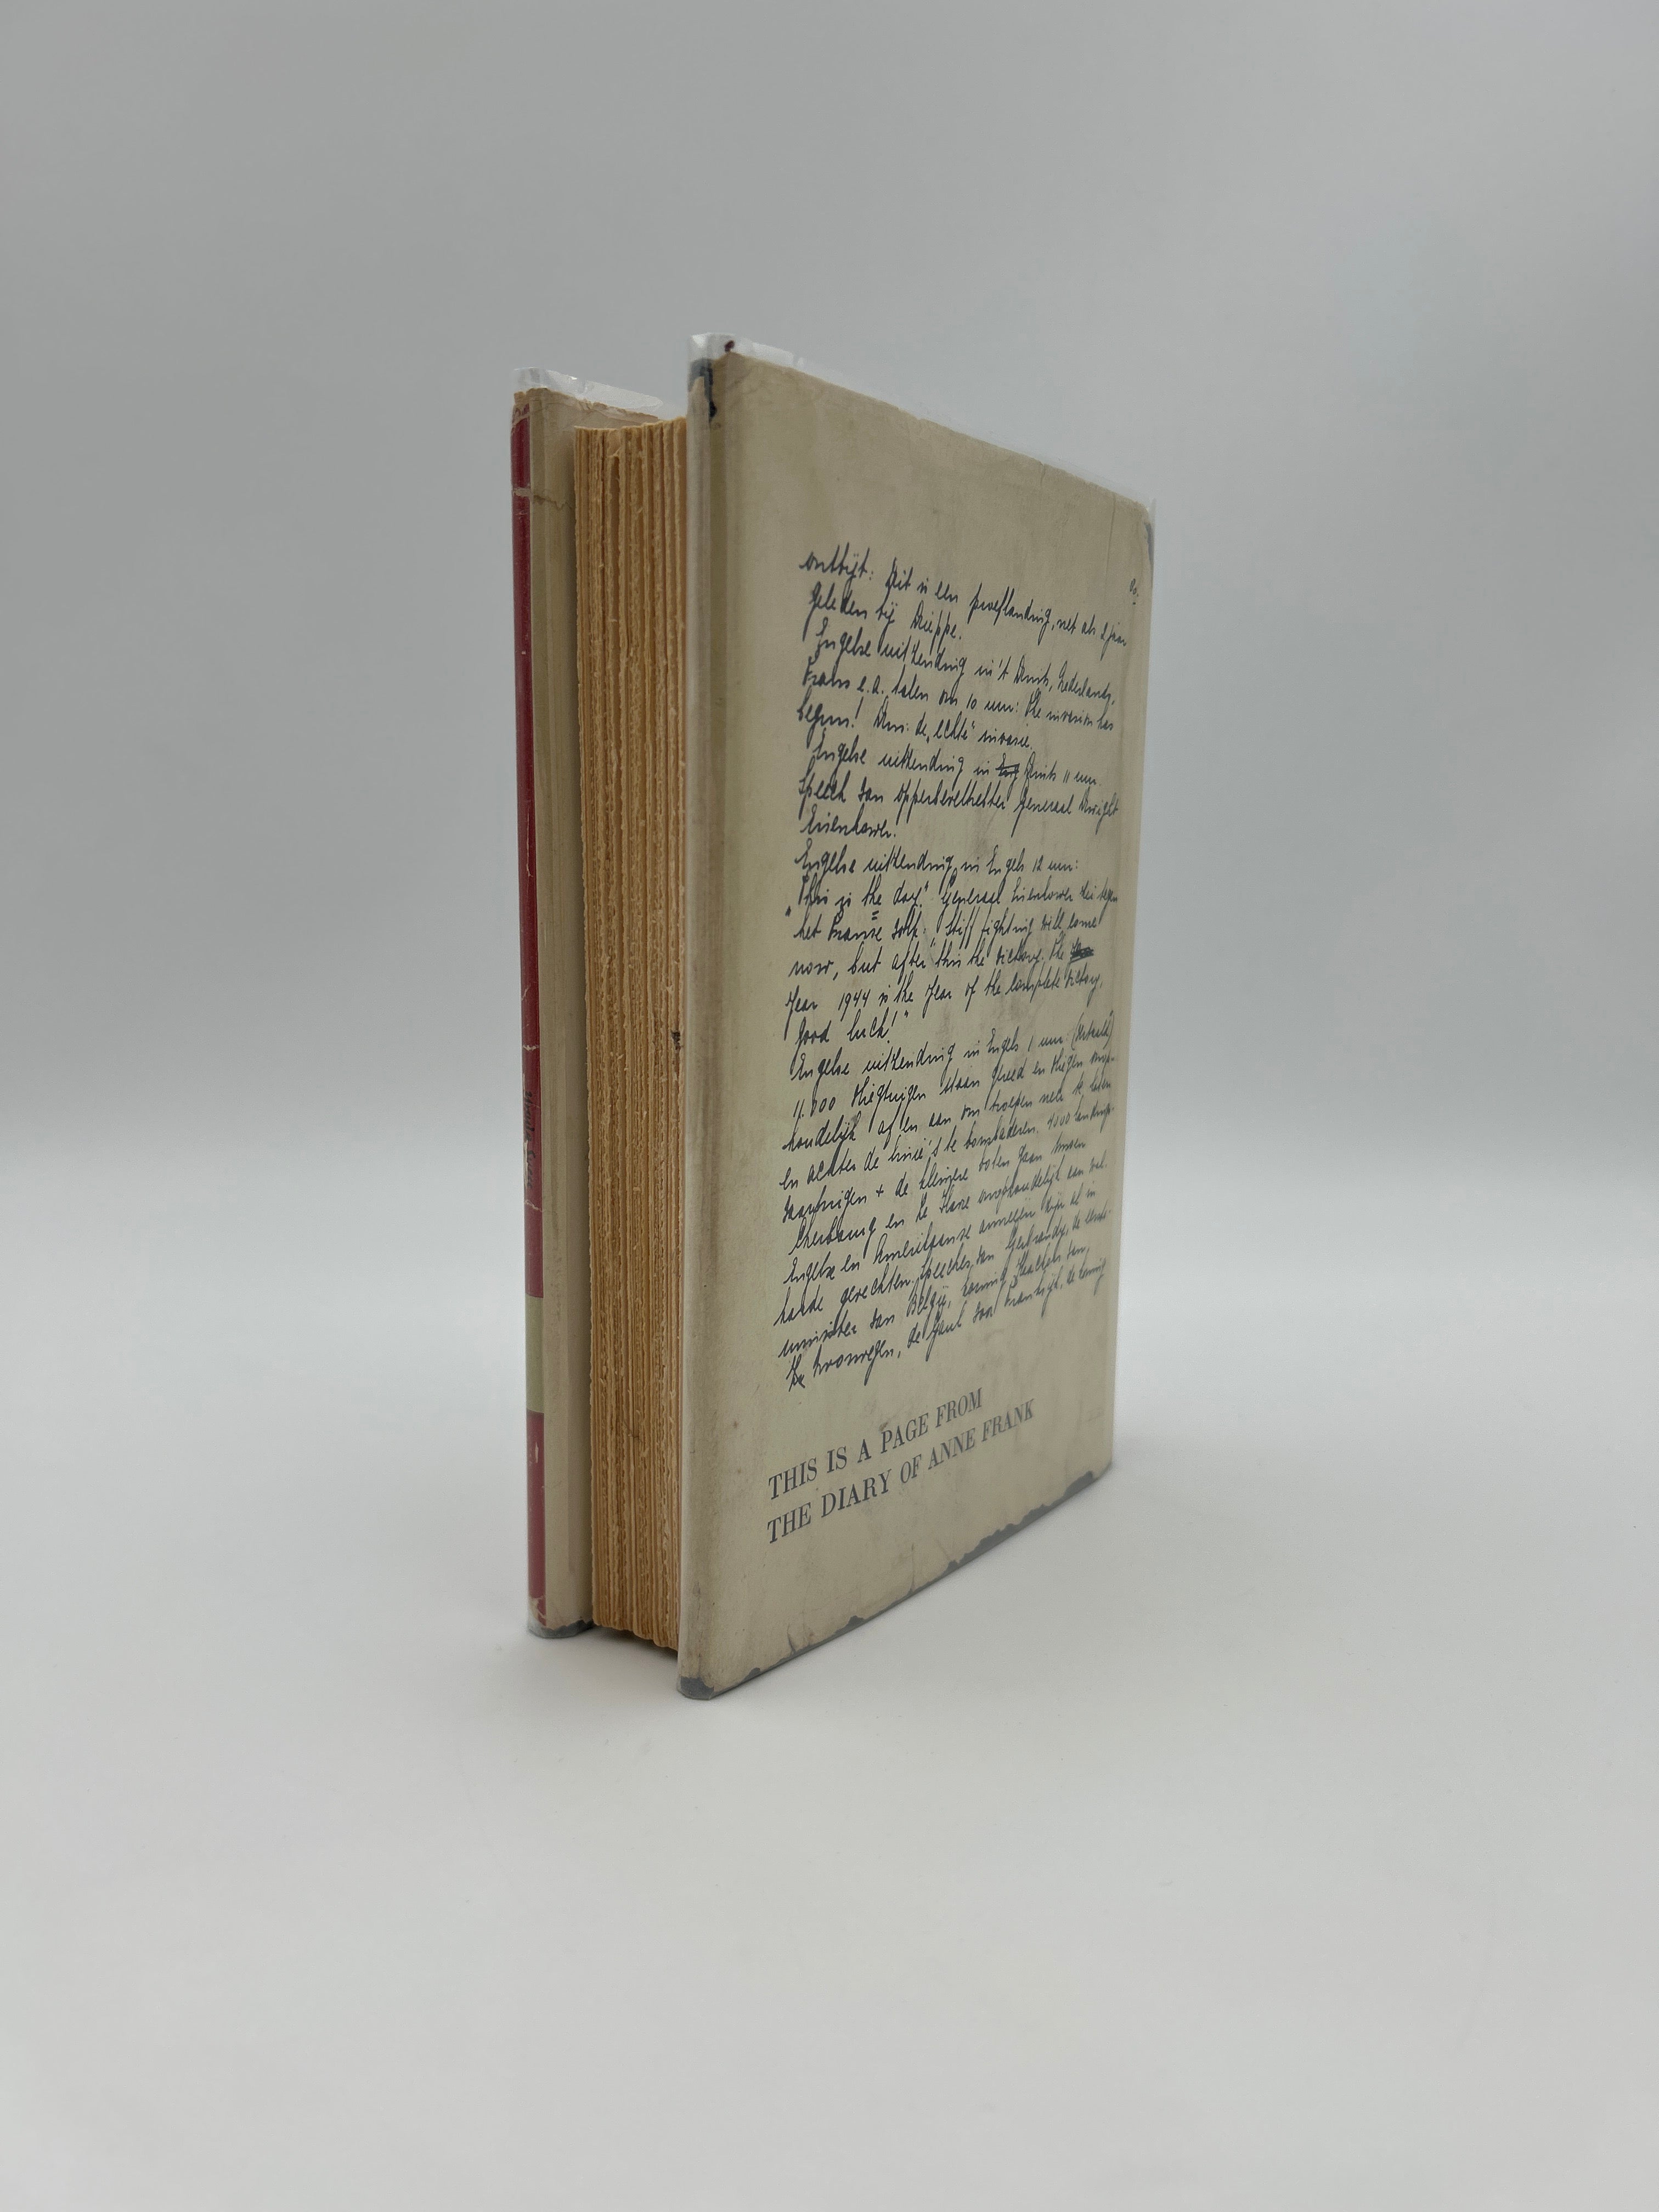 80.
ontbijt: Dit is een proeflanding, net als 2 jaar
geleden bij Dieppe.
Engelse uitzending in't Duits, Nederlands,
Frans e.a. talen om 10 uur: The invasion has
begun! Dus: de „echte" invasie.
Engelse uitzending in Eng Duits 11 uur.
Speech van opperbevelhebber Generaal Dwight
Eisenhower.
Engelse uitzending in Engels 12 uur:
"This is the day." Generaal Eisenhower zei tegen
het Franse volk: "Stiff fighting will come
now, but after this the victory. The
Year 1944 is the Year of the complete victory,
good luck!"
Engelse uitzending in Engels 1 uur: (vertaald)
11.000 vliegtuigen staan gereed en vliegen onop-
houdelijk af en aan om troepen neer te laten
en achter de linie's te bombarderen. 4000 landings-
vaartuigen + de kleinere boten gaan tussen
Cherbourg en Le Havre onophoudelijk aan wal.
Engelse en Amerikaanse armeeën zijn al in
harde gevechten. Speeches van Gerbrandy, de eerste-
minister van België, koning Haakon van,
Noorwegen, de Gaul voor Frankrijk, de koning
THIS IS A PAGE FROM
THE DIARY OF ANNE FRANK